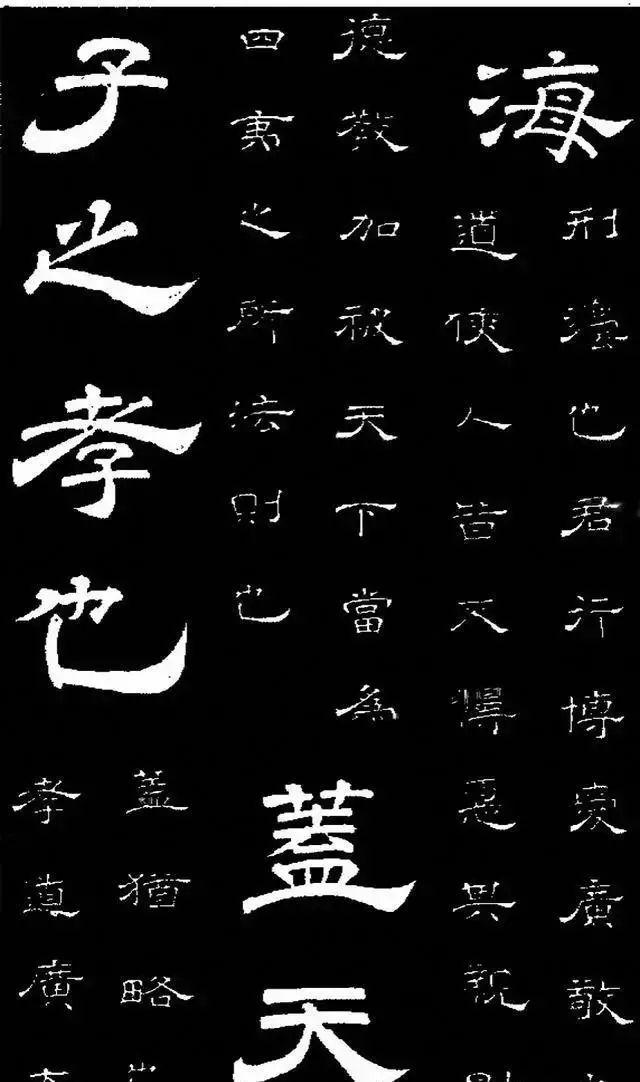 海
刑灋也君行博愛廣敬
道使人皆不慢惡其親
德教加被天下當為
四夷之所法則也
蓋天
子之孝也
蓋猶略
孝道廣